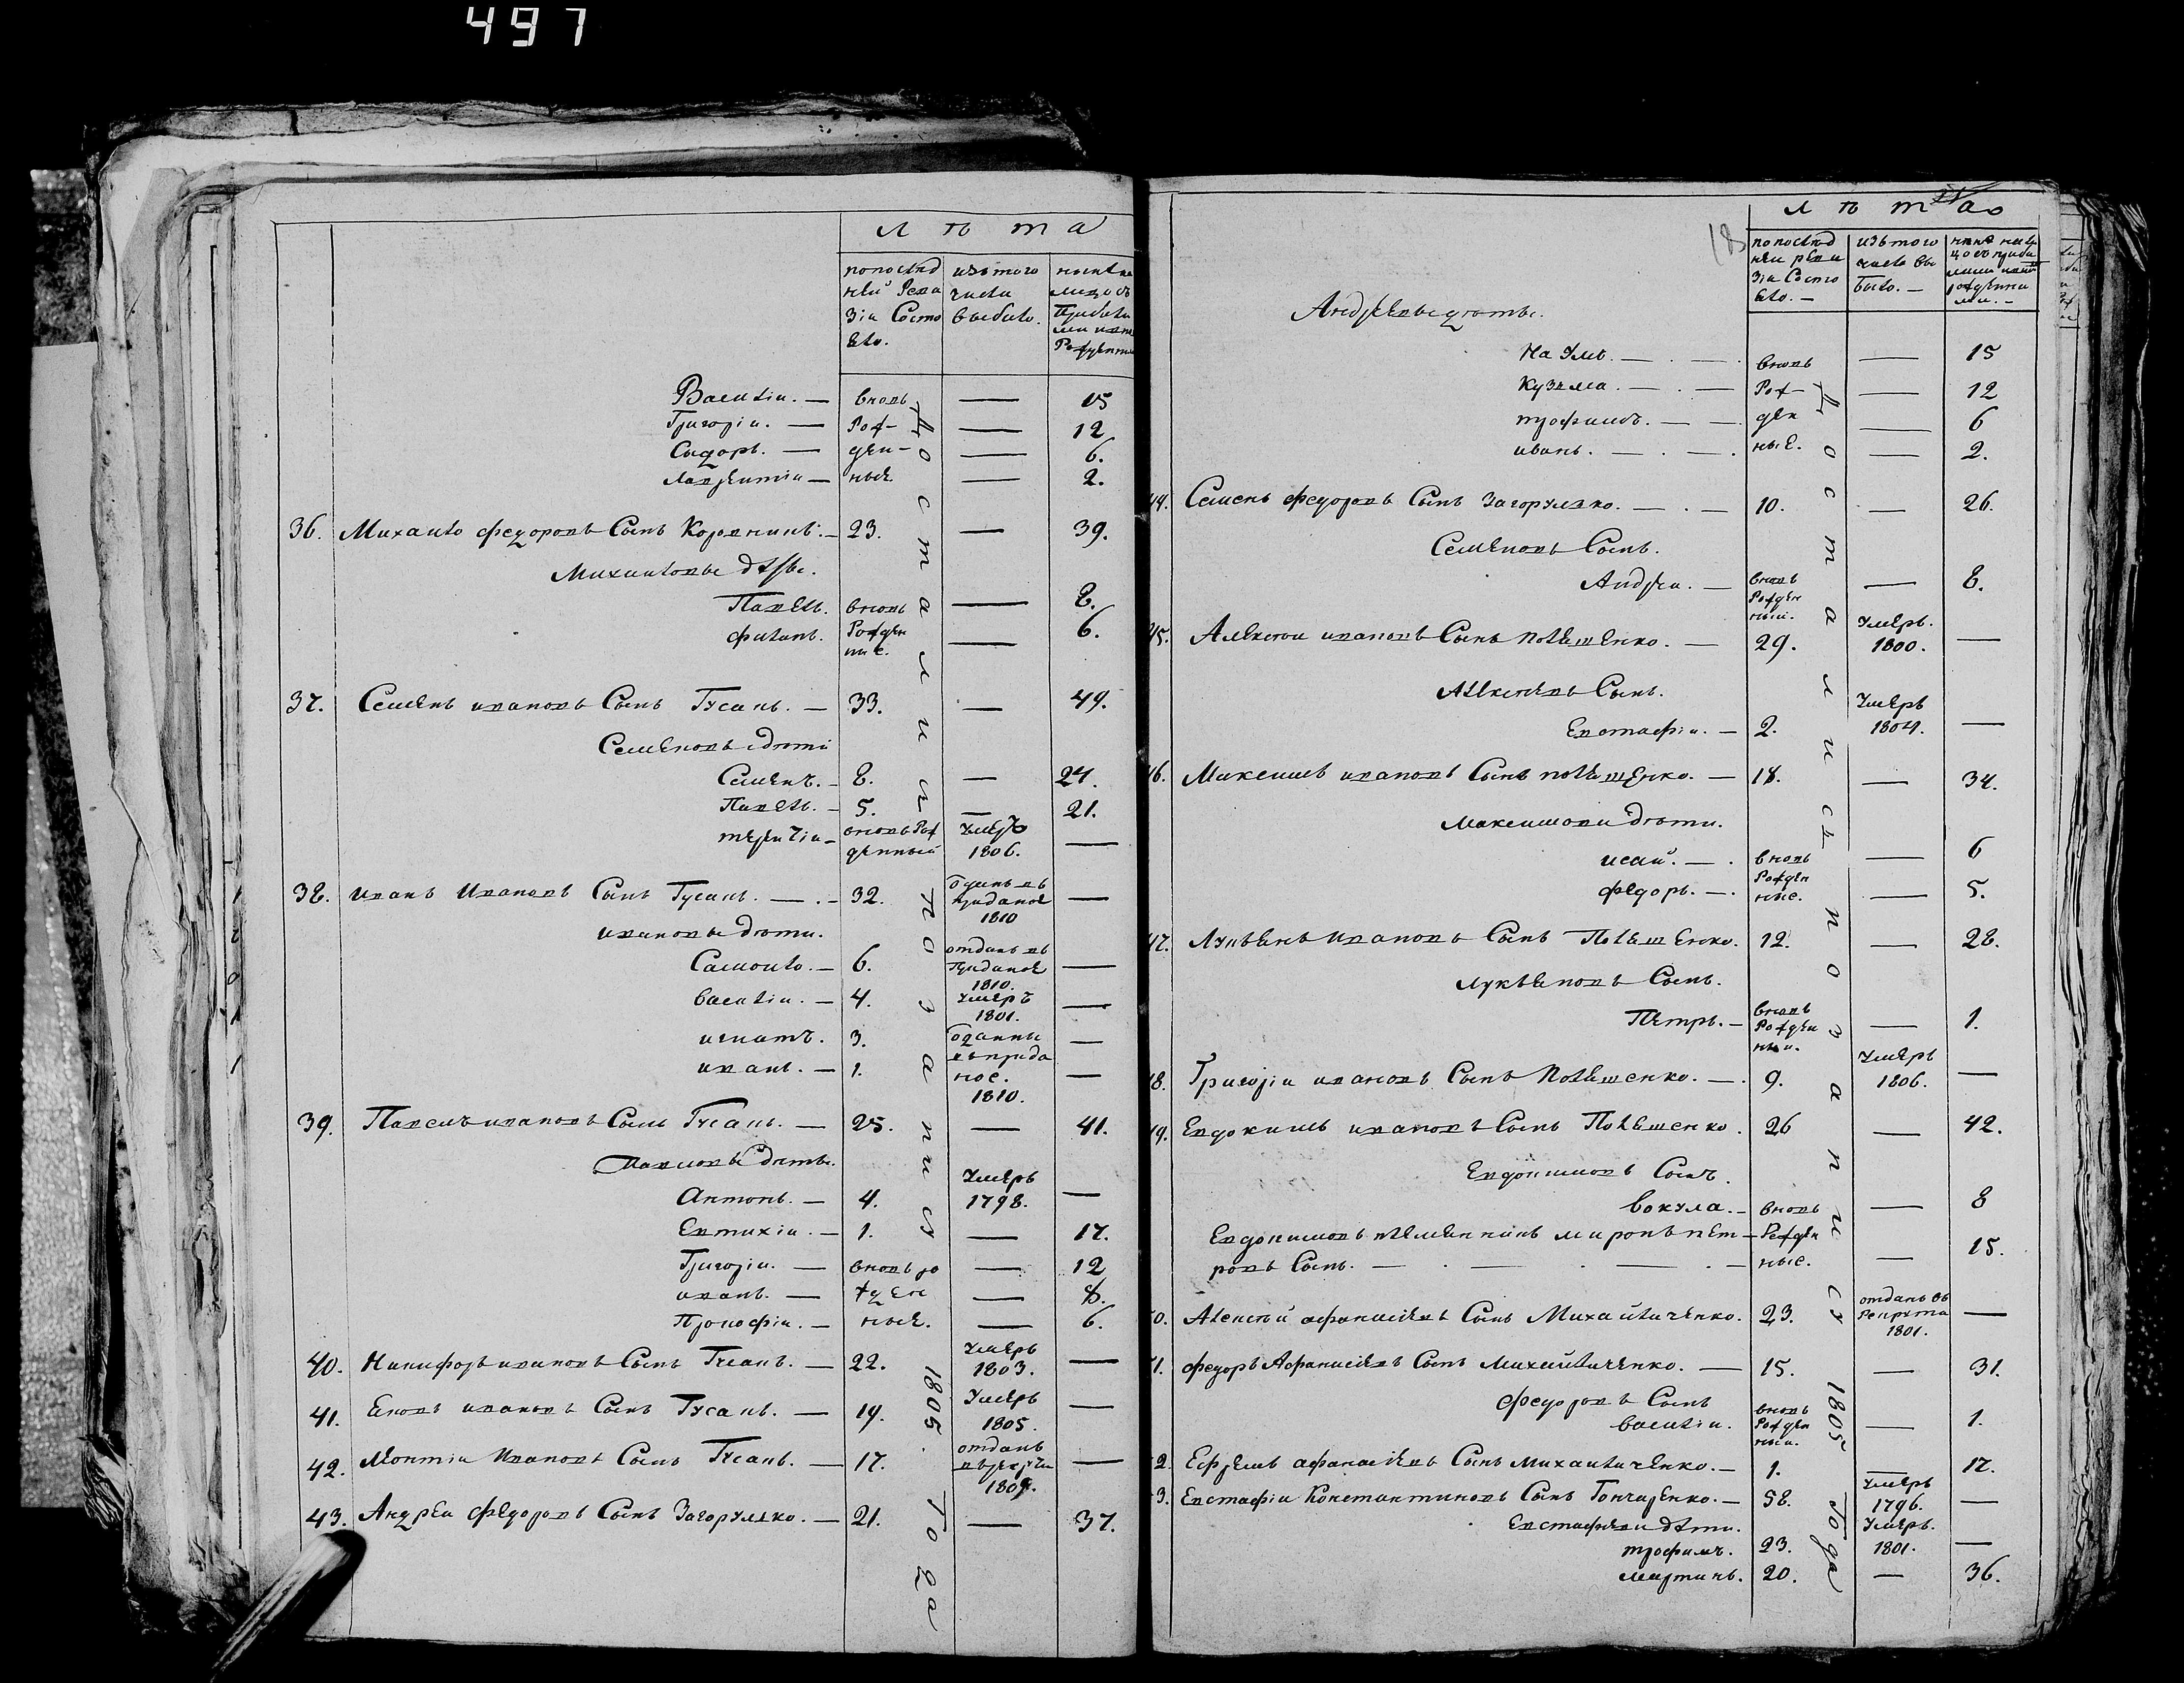 497
лѣта
попослѣд
ней Реви
зіи Состо
яло.
изъ того
числа
выбыло.
Василіи. — вновь — 15
Григоріи. — Рож- — 12
Сидоръ. — ден- — 6.
Лаврентіи — ные — 2.
36. Михаило федоровъ Сынъ Коровнинъ. — 23. — 39.
Михаиловы дѣти.
Павелъ. вновь — 8.
филипъ. Рожден ные. — 6.
37. Семенъ ивановъ Сынъ Гусакъ. — 33. — 49.
Семеновы дѣти
Семенъ. — 8. — 24.
Павелъ. — 5. — 21.
терентіи — вновь Рож денный умеръ 1806. —
38. иванъ Ивановъ Сынъ Гусакъ. — 32. 1810 —
ивановы дѣти.
Самоило. — 6. отданъ въ Приданое 1810. —
василіи. — 4. умеръ 1801. —
игнатъ. 3. —
иванъ. — 1. въ прида ное. 1810. —
39. Павелъ ивановъ Сынъ Гусакъ. — 25. — 41.
Павловы дѣти.
Антонъ. — 4. умеръ 1798. —
Евтихіи. — 1. — 17.
Григоріи. — вновь ро — 12
иванъ. — жден — 8.
Прокофіи. — ные. — 6.
40. Никифоръ ивановъ Сынъ Гусакъ. — 22. Умеръ 1803. —
41. ивановъ Сынъ Гусакъ. — 19. Умеръ 1805. —
42. Ивановъ Сынъ Гусакъ. — 17. отданъ врекруты 1809. —
43. Андреи Федоровъ Сынъ Загорулько. — 21. — 37.
достались позаписи 1805. Года
18
лѣта
попослѣд
ней реви
зіи Состо
яло. —
изъ того
числа вы
было. —
Андреевы дѣти.
Наумъ. — . — вновь — 15
Кузьма. — . — Рож- — 12
трофимъ. — — ден — 6
иванъ. — . — . ные. — 2.
44. Семенъ федоровъ Сынъ Загорулько. — . — 10. — 26.
Семеновъ Сынъ.
Андреи. — вновь Рожден ныи. — 8.
45. Алексеи ивановъ Сынъ Полешенко. — 29. Умеръ. 1800. —
Алексеевъ Сынъ.
Евстафіи. — 2. Умеръ 1804. —
46. Максимъ ивановъ Сынъ полешенко. — 18. — 34.
Максимови дѣти.
исаи. — . вновь — 6
федоръ. — . Рожден ные. — 5.
47. Лукьянъ Ивановъ Сынъ Полешенко. 12. — 28.
Лукьяновъ Сынъ.
Петръ. — вновь Рожден ныи. — 1.
48. Григоріи ивановъ Сынъ Полешенко. — . 9. Умеръ 1806. —
49. Евдокимъ ивановъ Сынъ Полешенко. 26 — 42.
Евдокимовъ Сынъ.
вокула. — вновь — 8
Евдокимовъ племенникъ миронъ пет — Рожден
ровъ Сынъ. — . — . — . — ные. — 15.
50. Алексеи афанасіевъ Сынъ Михайличенко. 23. отданъ въ Рекрута 1801. —
51. федоръ Афанасіевъ Сынъ михайличенко. — 15. — 31.
Федоровъ Сынъ
василіи. вновь Рожден ныи. — 1.
52. Ефремъ афанасіевъ Сынъ михаиличенко. — 1. — 17.
53. Евстафіи Константиновъ Сынъ Гончаренко. — 58. Умеръ 1796. —
Евстафіеви дѣти.
трофимъ. 23. Умеръ. 1801. —
мартинъ. 20. — 36.
достались позаписи 1805 Года